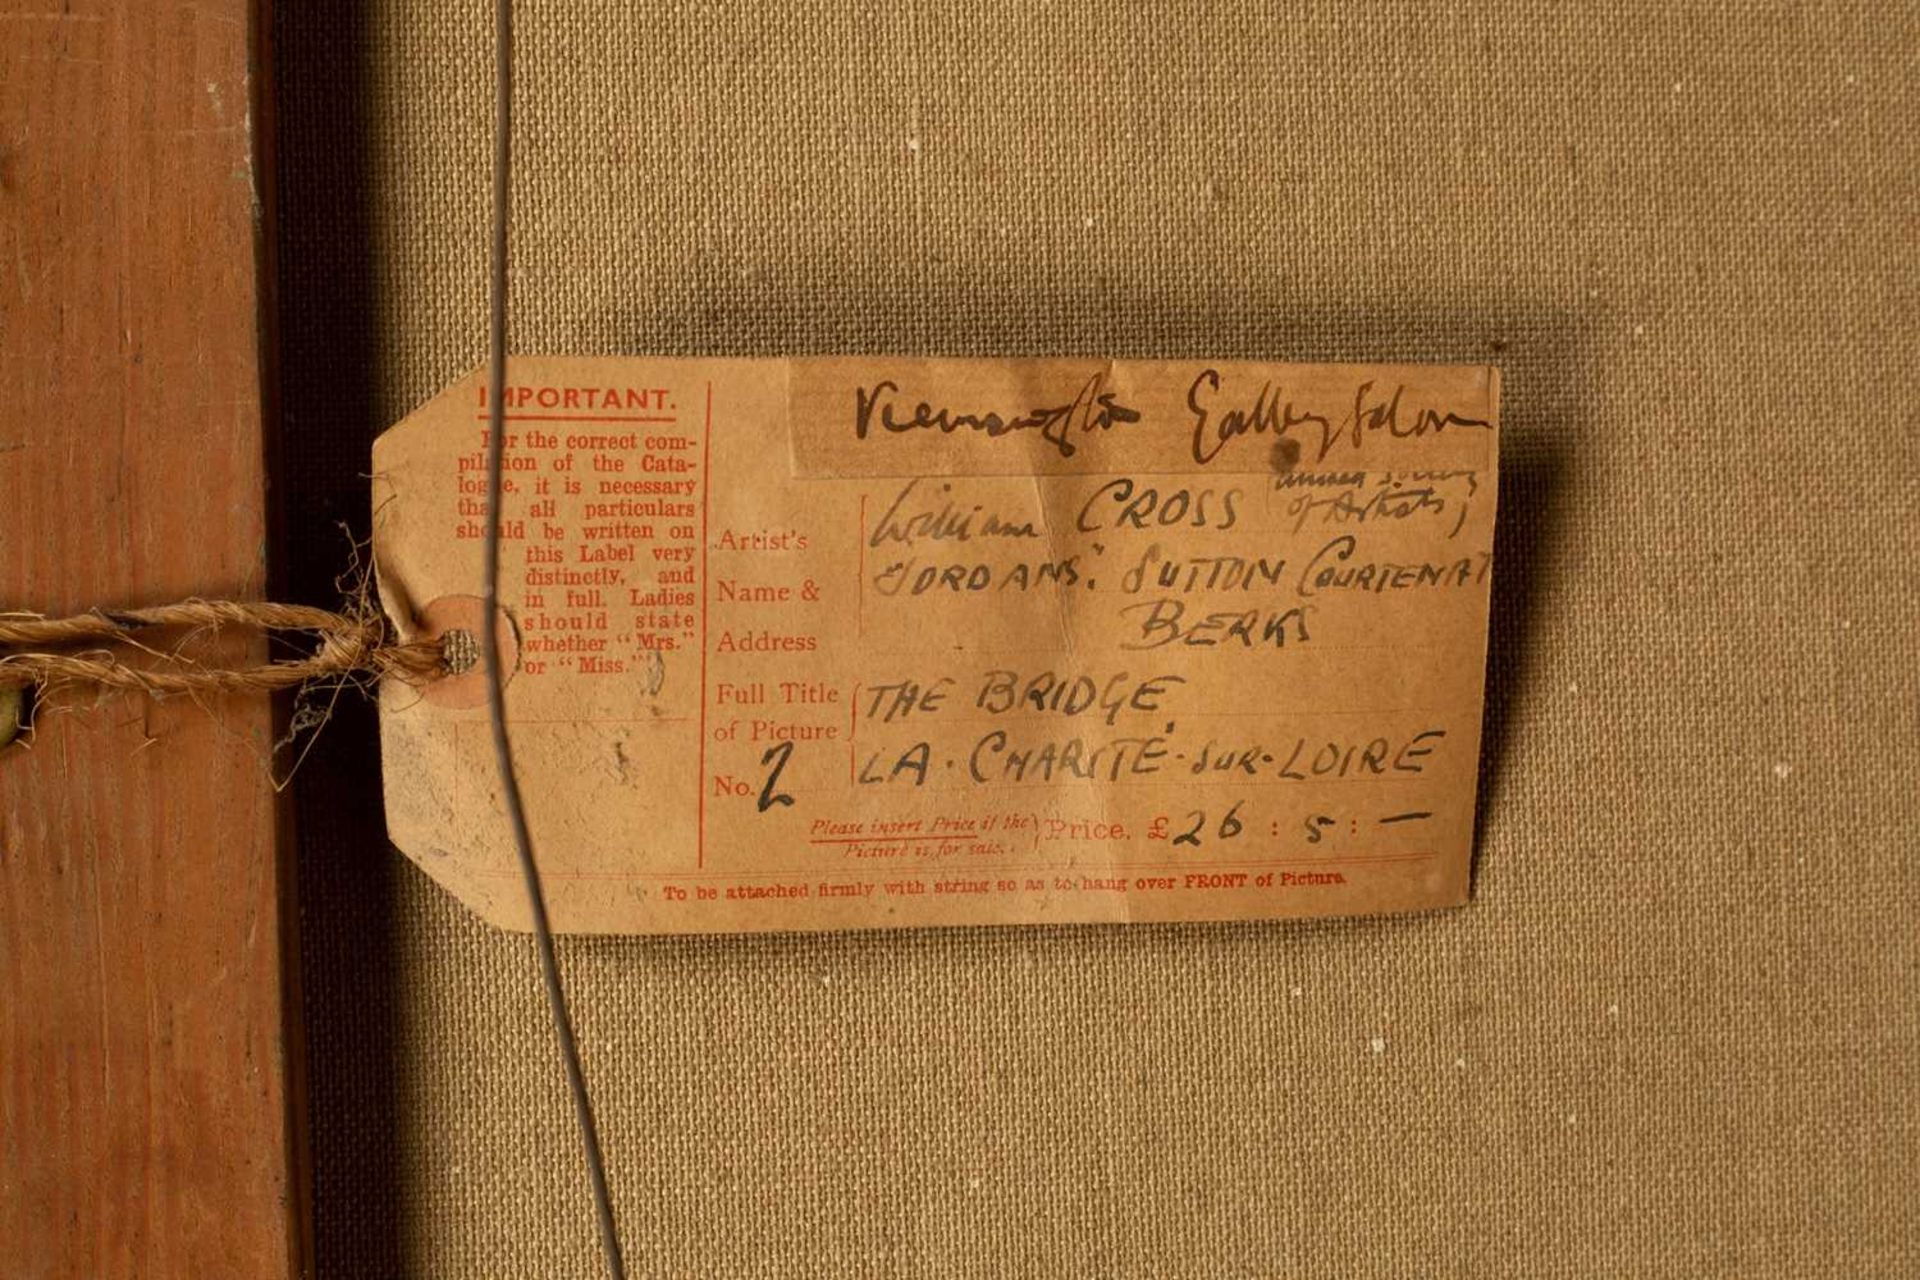 IMPORTANT.
For the correct com-
pilation of the Cata-
logue, it is necessary
that all particulars
should be written on
this Label very
distinctly, and
in full. Ladies
should state
whether "Mrs."
or "Miss."
Kensington Gallery Salon
Artist's
Name &
Address
William CROSS
of Artists,
"JORDANS". SUTTON COURTENAY
BERKS
Full Title
of Picture
THE BRIDGE,
LA · CHARITÉ - SUR - LOIRE
No. 2
Please insert Price if the
Picture is for sale.
Price. £26 : 5 : —
To be attached firmly with string so as to hang over FRONT of Picture.